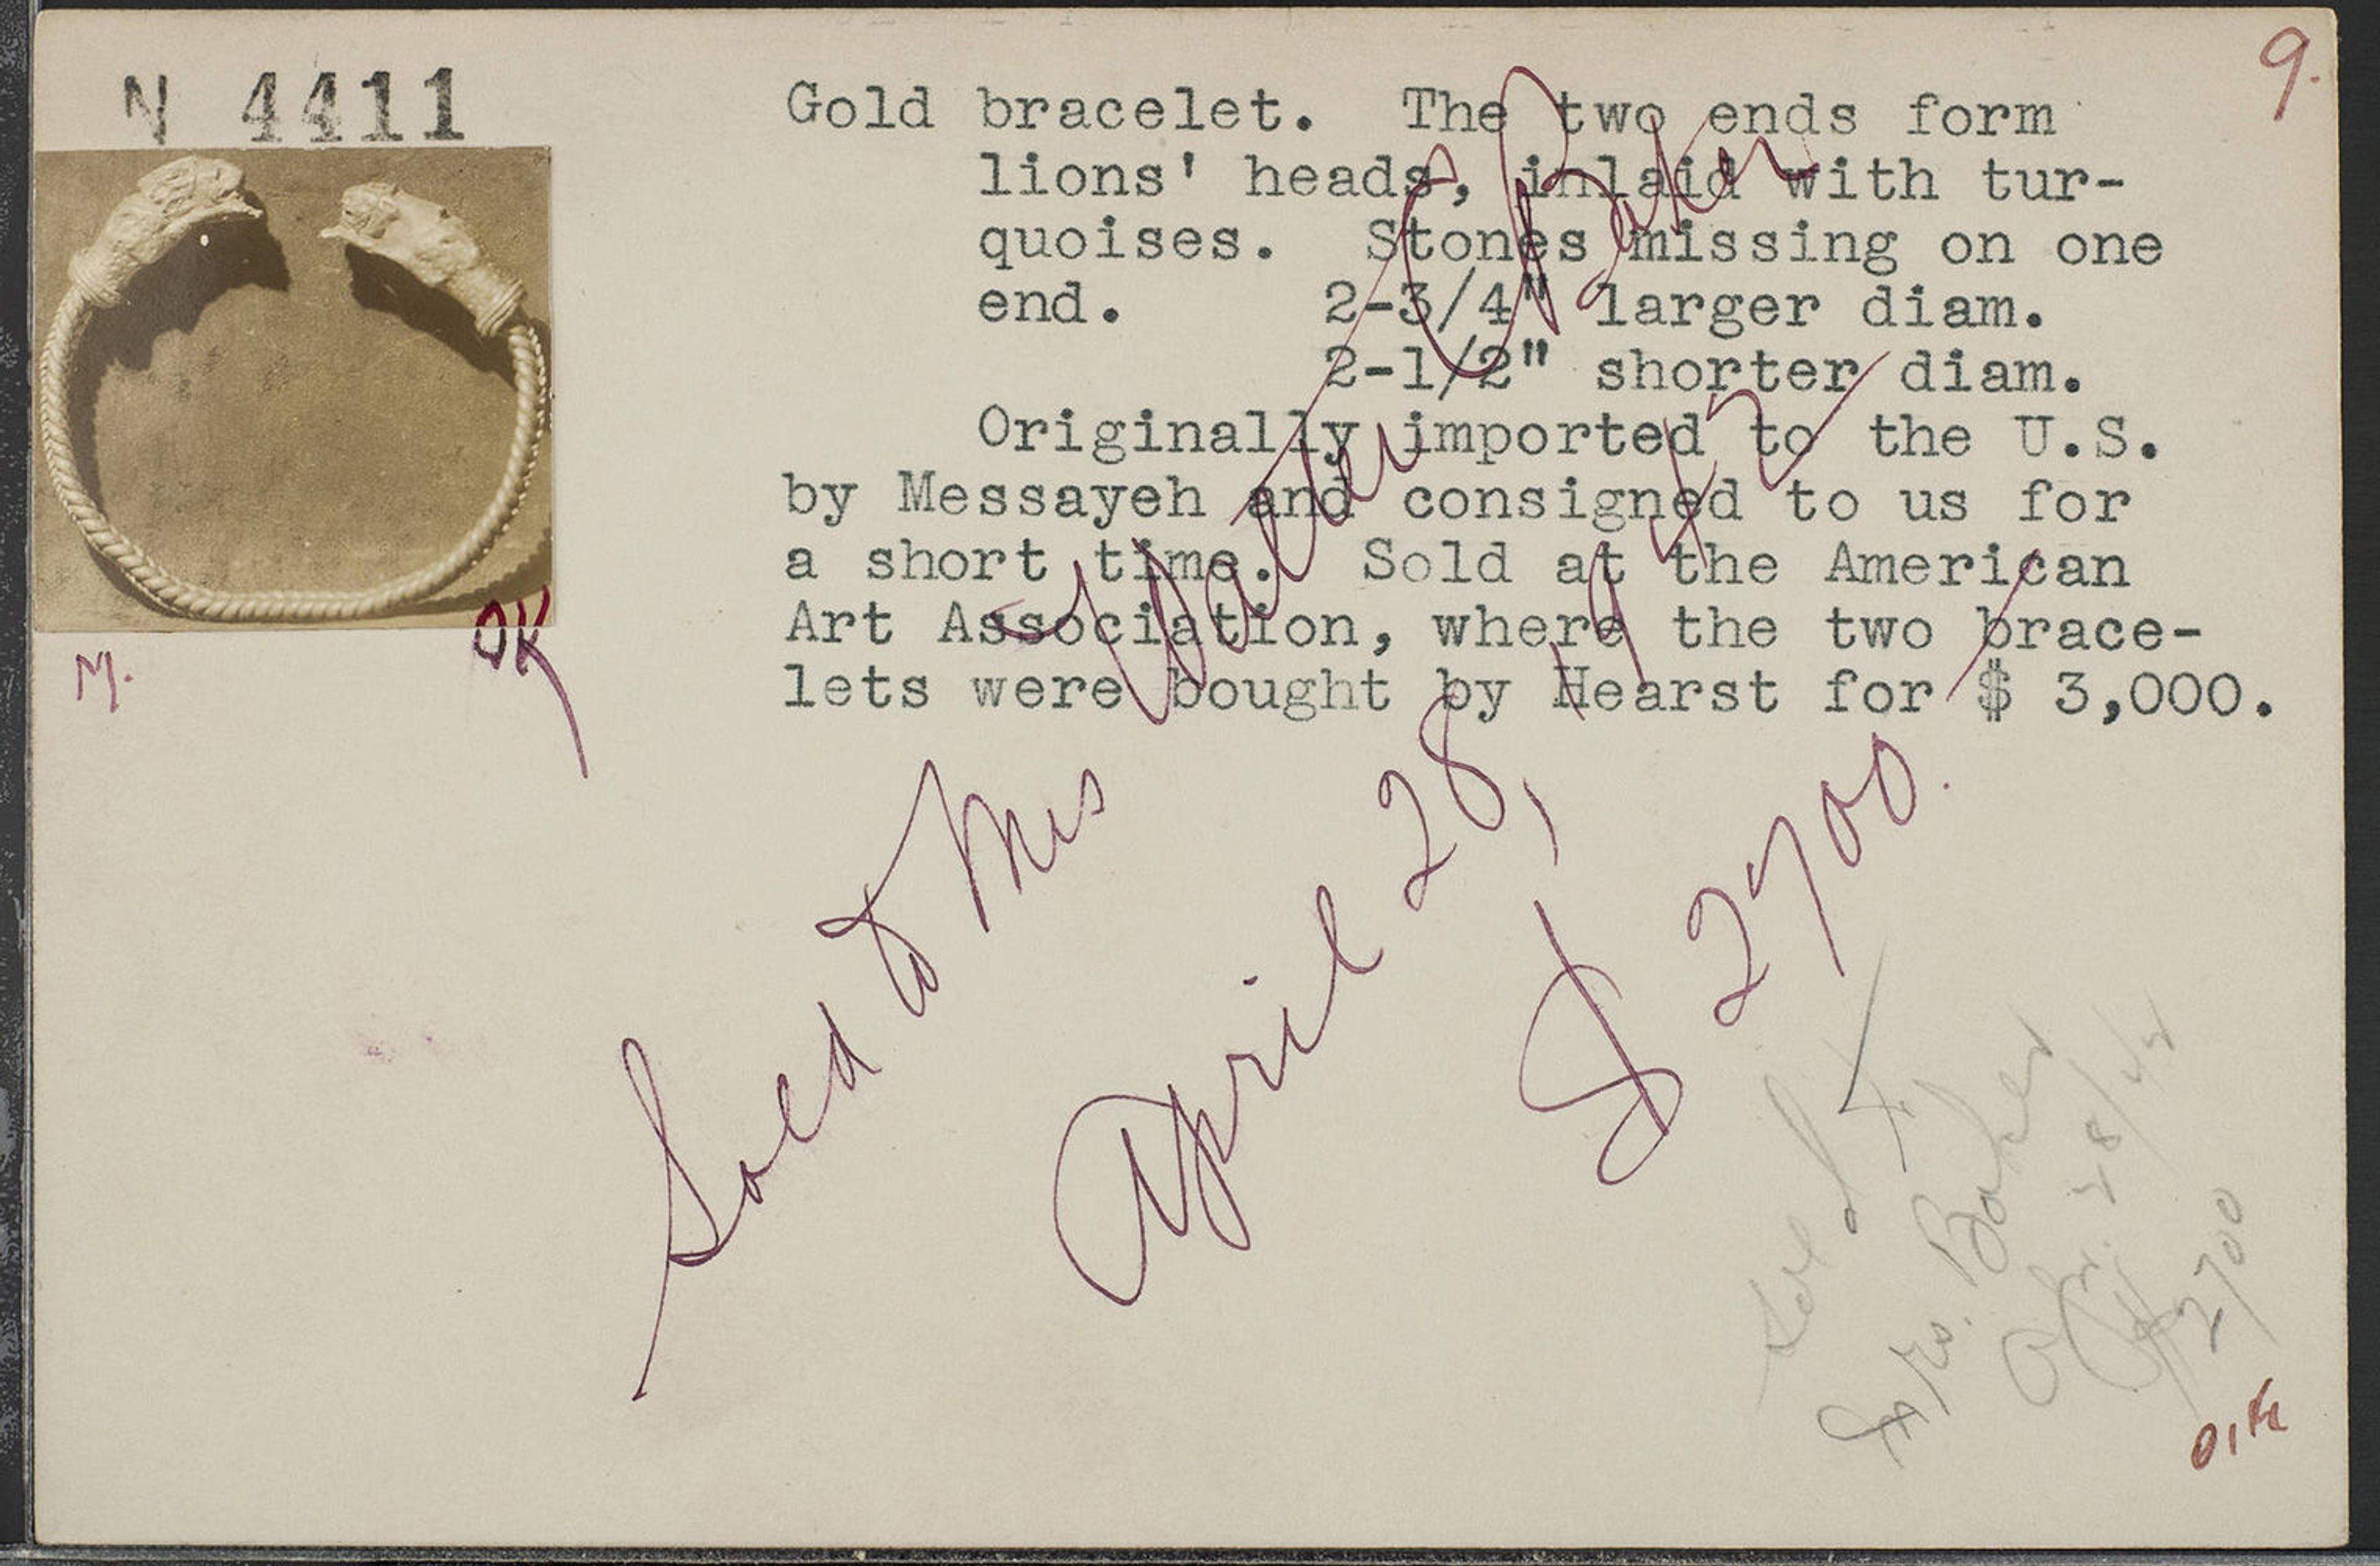 N 4411
9.
Gold bracelet. The two ends form
lions' heads, inlaid with tur-
quoises. Stones missing on one
end. 2-3/4" larger diam.
2-1/2" shorter diam.
Originally imported to the U.S.
by Messayeh and consigned to us for
a short time. Sold at the American
Art Association, where the two brace-
lets were bought by Hearst for $ 3,000.
M.
OK
Sold to Mrs Walter Baker
April 28, 1942
$ 2700.
Sold to
Mrs. Baker
Apr. 28/42
2700
O.K